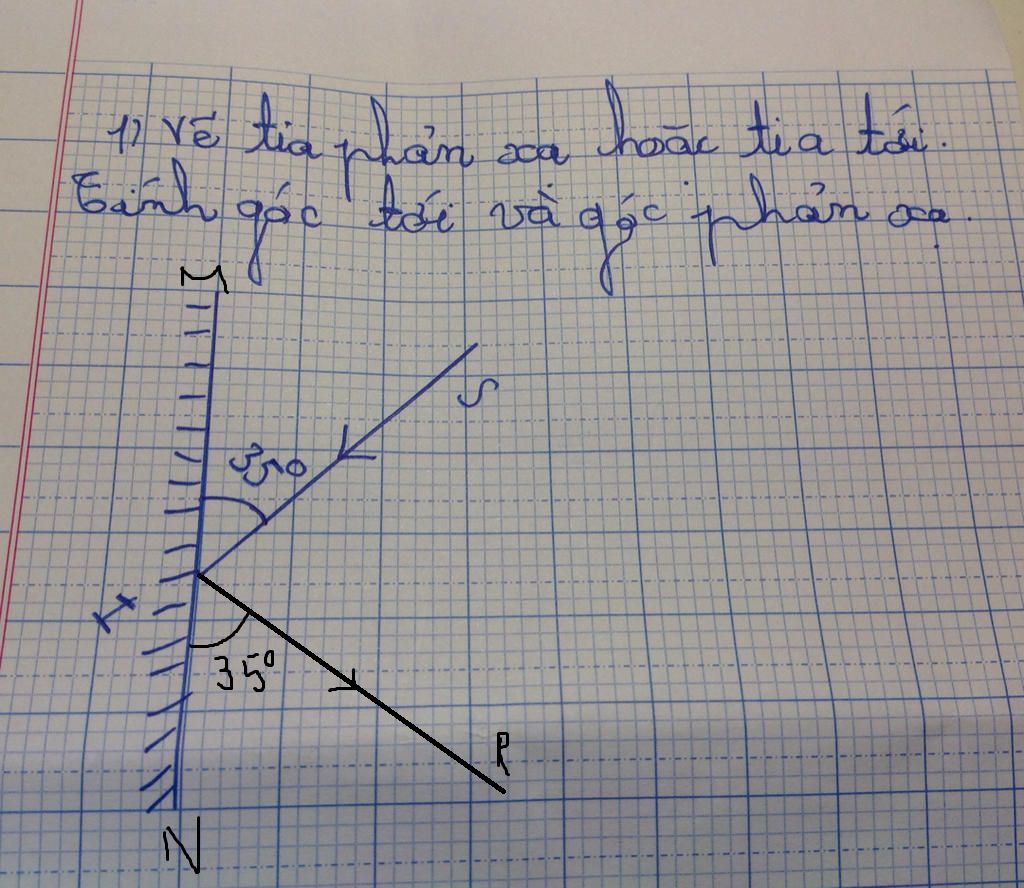 1) Vẽ tia phản xạ hoặc tia tới.
Tính góc tới và góc phản xạ.
M
S
35°
I
35°
R
N